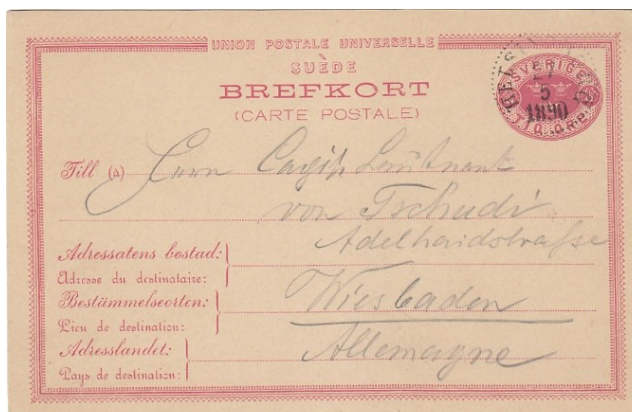 UNION POSTALE UNIVERSELLE
SUÈDE
BREFKORT
(CARTE POSTALE)
SVERIGE
TIO
5
1890
Till (à) Herrn Lieutnant
von Tschudi
Adelhaidstraße
Adressatens bostad:
Adresse du destinataire:
Wiesbaden
Bestämmelseorten:
Lieu de destination:
Allemagne
Adresslandet:
Pays de destination: